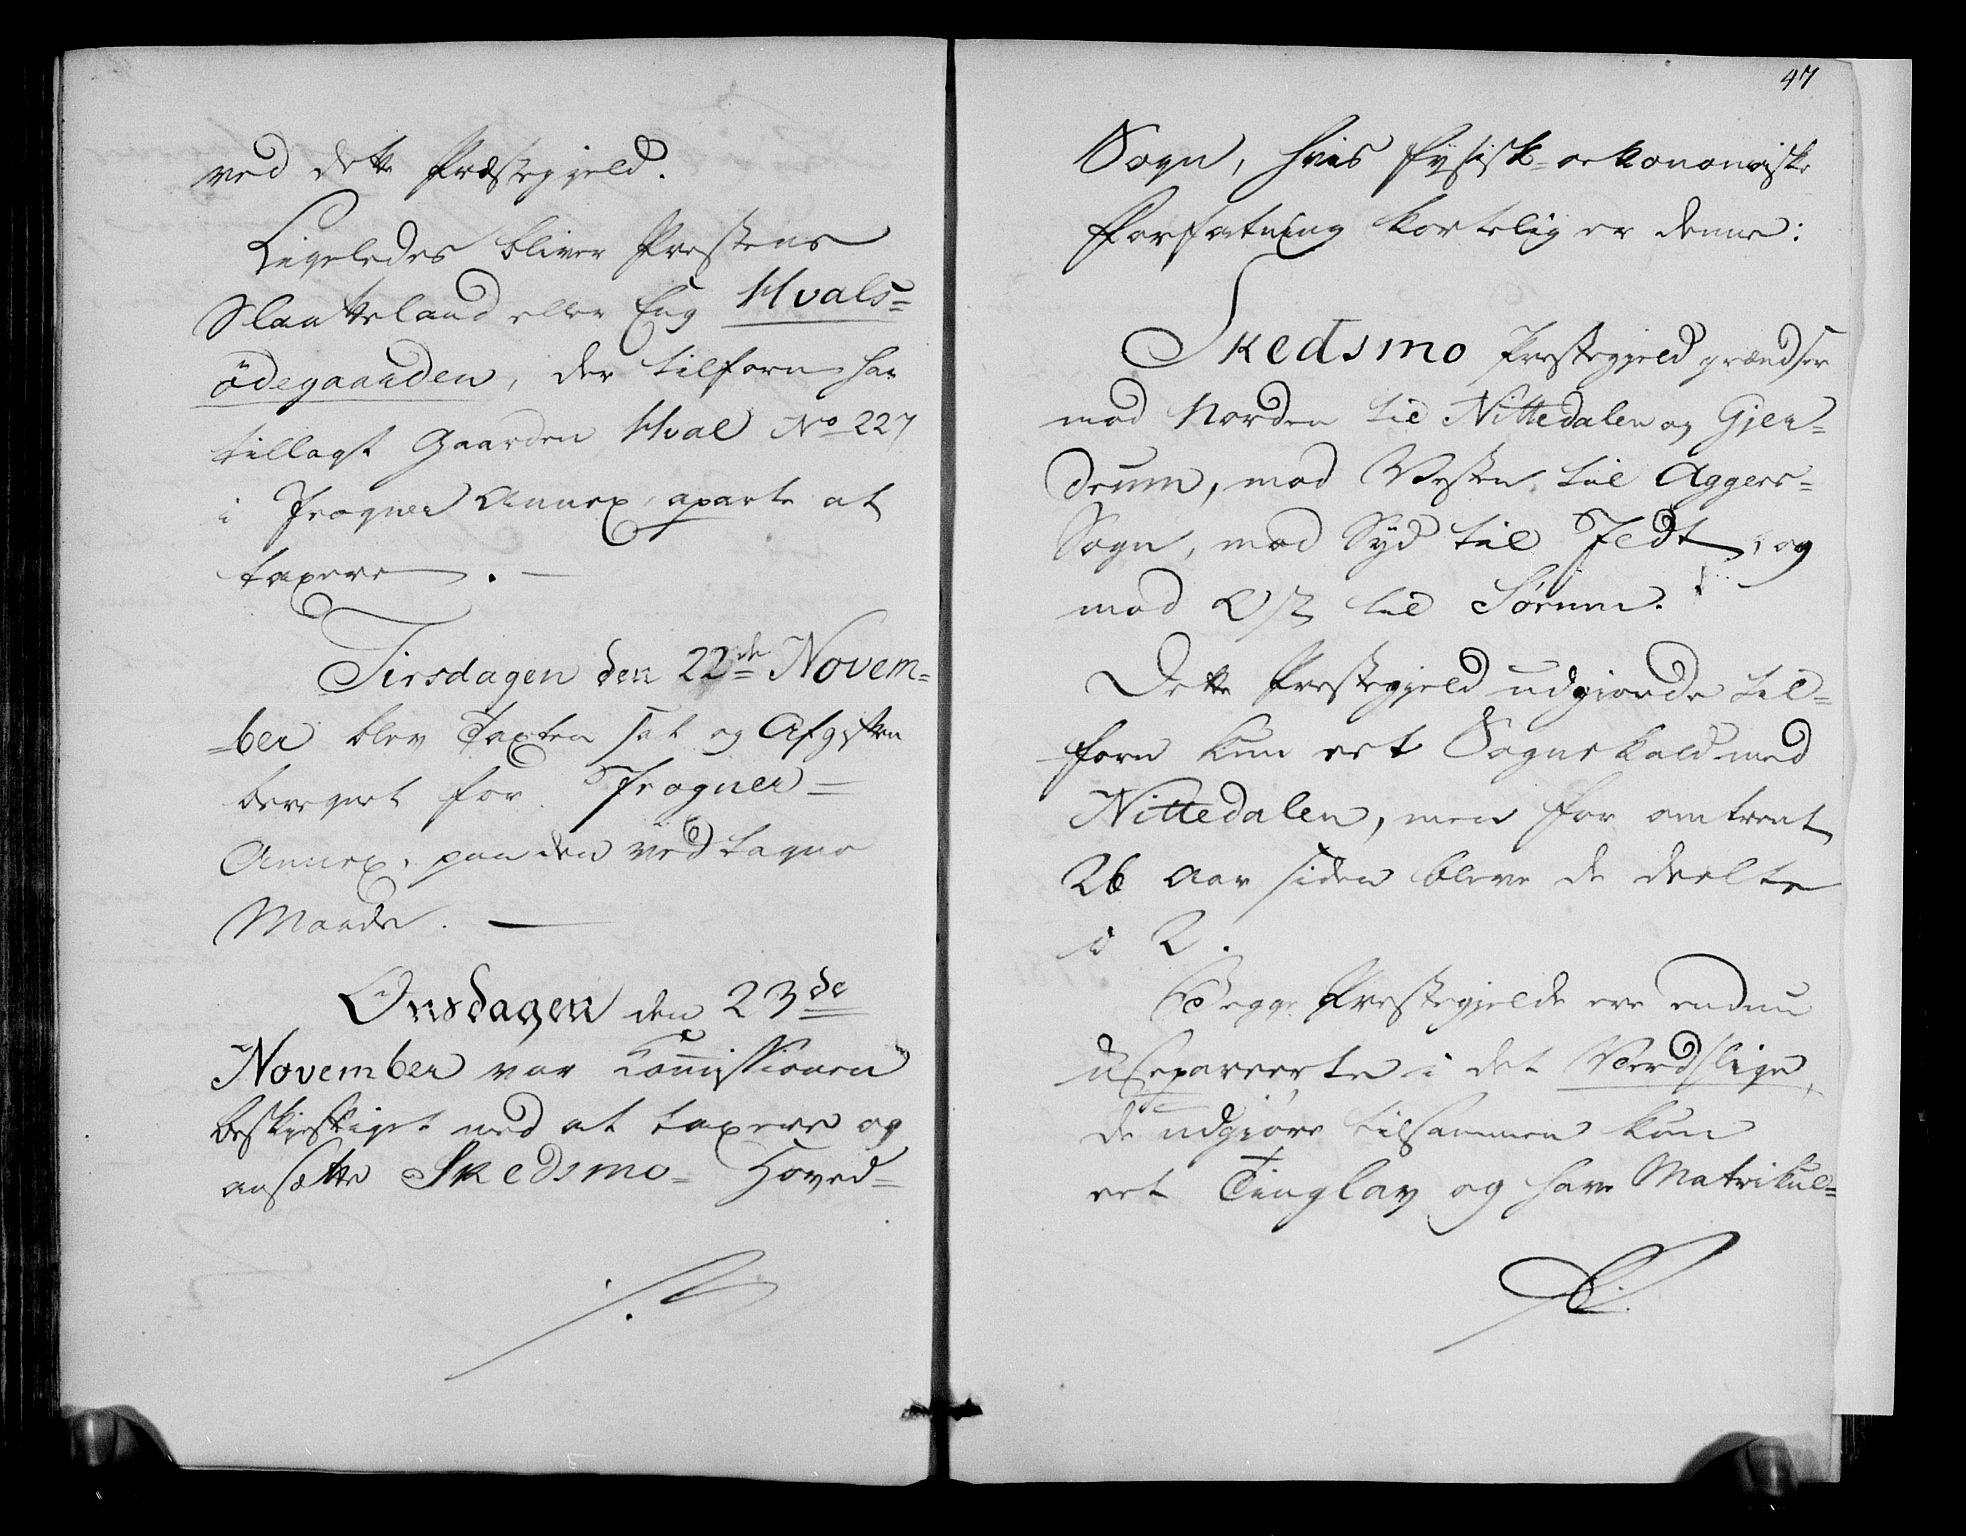 ved dette Præstegjeld.
Ligeledes bliver Prestens
Slaatteland eller Eng Hvals=
ödegaarden, der tilforn har
tillagt Gaarden Hval No 227
i Frogner Annex, aparte at
taxere. —
Tirsdagen den 22de Novem=
=ber blev Taxten sat og Afgiften
beregnet for Frogner=
Annex, paa den vedtagne
Maade. —
Onsdagen den 23de
November var Kommissionen
beskjeftiget med at taxere og
ansætte Skedsmo= Hoved=
47
Sogn, hvis fysisk=oekonomiske
Forfatning kortelig er denne:
Skedsmo Prestegjeld grændser
mod Norden til Nittedalen og Gjer=
drum, mod Vesten til Aggers=
Sogn, mod Syd til Fedt, og
mod Ost til Sørum.
Dette Prestegjeld udgiorde til=
forn kun eet Sognekald med
Nittedalen, men for omtrent
26 Aar siden bleve de deelte
i 2.
Begge Prestegjelde ere endnu
useparerte i det Verdslige,
de udgiøre tilsammen kun
eet Tinglav og have Matrikul=